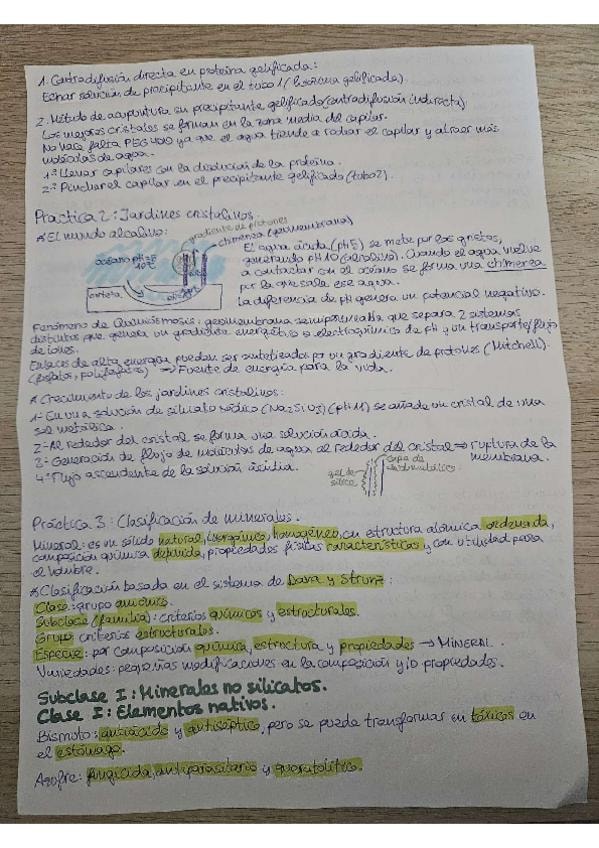 1. Contradifusión directa en proteína gelificada:
Echar solución de precipitante en el tubo 1 (lisozima gelificada).
2. Método de acupuntura en precipitante gelificado (contradifusión indirecta)
Los mejores cristales se forman en la zona media del capilar.
No hace falta PEG 400 ya que el agua tiende a rodear el capilar y atraer más
moléculas de agua.
1º: Llenar capilares con la disolución de la proteína.
2º: Pinchar el capilar en el precipitante gelificado (tubo 2).
Practica 2: Jardines cristalinos.
* El mundo alcalino:
gradiente de protones
chimenea (geomembrana)
océano pH=5
corteza
El agua ácida (pH 5) se mete por las grietas,
generando pH 10 (alcalino). Cuando el agua vuelve
a contactar con el océano se forma una chimenea
por la que sale ese agua.
La diferencia de pH genera un potencial negativo.
Fenómeno de Quimiósmosis: geomembrana semipermeable que separa 2 sistemas
distintos que genera un gradiente energético o electroquímico de pH y un transporte/flujo
de iones.
Enlaces de alta energía pueden ser sintetizados por un gradiente de protones (Mitchell).
(fosfatos, polifosfatos) → Fuente de energía para la vida.
* Crecimiento de los jardines cristalinos:
1- En una solución de silicato sódico (Na2SiO3) (pH 11) se añade un cristal de una
sal metálica.
2- Al rededor del cristal se forma una solución ácida.
3- Generación de flujo de moléculas de agua al rededor del cristal ⇒ ruptura de la
membrana.
4- Flujo ascendente de la solución
gel de
sílice
capa de
Práctica 3: Clasificación de minerales.
Mineral: es un sólido natural, inorgánico, homogéneo, con estructura atómica ordenada,
composición química definida, propiedades físicas características y con utilidad para
el hombre.
* Clasificación basada en el sistema de Dana y Strunz:
Clase: grupo aniónico.
Subclase (familia): criterios químicos y estructurales.
Grupo: criterios estructurales.
Especie: por composición química, estructura y propiedades → MINERAL.
Variedades: pequeñas modificaciones en la composición y/o propiedades.
Subclase I: Minerales no silicatos.
Clase I: Elementos nativos.
Bismuto: antiácido y antiséptico, pero se puede transformar en tóxicos en
el estómago.
Azofre: fungicida, antiparasitario y queratolítico.